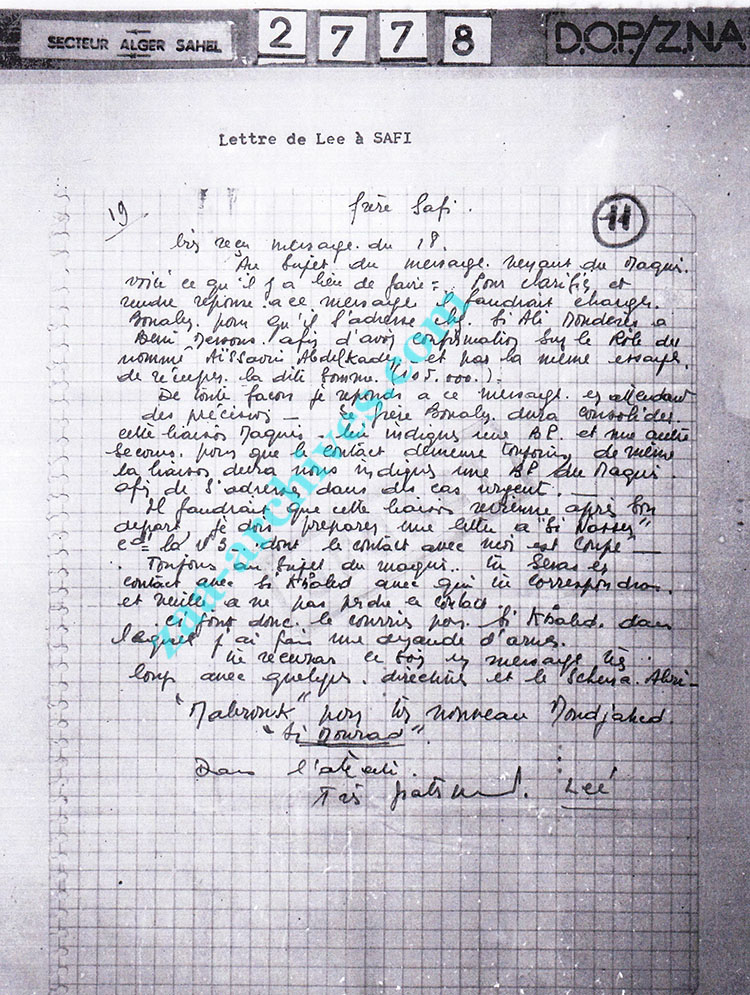 SECTEUR ALGER SAHEL 2 7 7 8 D.O.P./Z.N.A
Lettre de Lee à SAFI
19 frère Safi. 11
bis reçu message du 18.
Au sujet du message venant du Maquis.
voici ce qu'il y a lieu de faire = Pour clarifier et
rendre réponse a ce message il faudrait charger
Bonaley pour qu'il s'adresse chez Si Ali
Beni Messous afin d'avoir confirmation sur le Rôle du
nommé Aïssaoui Abdelkader et par la même essayer
de récuper la dite somme (105.000.).
De toute façon je réponds a ce message en attendant
des précisions _ Le frère Bonaley devra consolider
cette liaison Maquis. lui indiquer une BP. et une autre
Secours. pour que le contact demeure toujours, de même
la liaison devra nous indiquer une BP du Maquis
afin de s'adresser dans des cas urgent. _
Il faudrait que cette liaison revienne après son
départ je dois préparer une lettre a "Si Nasser"
de la dont le contact avec moi est coupé _
Toujours au sujet du maquis.. tu seras en
contact avec Si Khaled avec qui tu correspondras
et veille a ne pas perdre ce contact.
Ci joint donc. le courrier pour Si Khaled. dans
lequel j'ai fais une demande d'armes.
tu recevras ce soir un message très
long avec quelques directives et le Schéma.
"Mabrouk" pour ton nouveau Moudjahed
"Si Mourad".
Dans l'attente.
Très Lee
zaa-archives.com